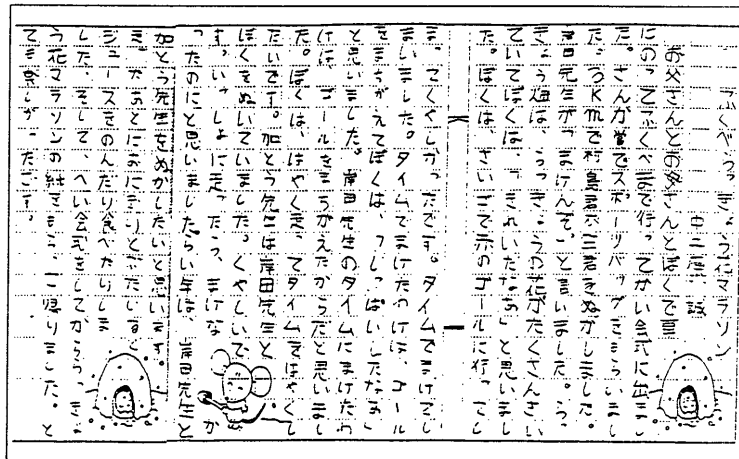 ふくべらっきょう花マラソン
中二 誠
お父さんとお母さんとぼくで車
にのってふくべまで行ってかい会式に出まし
た。さんが賞でスポーツバッグをもらいまし
た。3Kmで村島君をぬかしました。
岸田先生が「まけんぞ。」と言いました。らっ
きょう畑は、らっきょうの花がたくさんさい
ていてぼくは、「きれいだなあ」と思いまし
た。ぼくは、さいごで赤のゴールに行ってし
まってくやしかったです。タイムでまけてし
まいました。タイムでまけたわけは、ゴール
をまちがえてぼくは、「しっぱいしたなあ」
と思いました。岸田先生のタイムにまけたわ
けは、ゴールをまちがえたからだと思いまし
た。ぼくは、はやく走ってタイムをはやくし
たいです。加とう先生は岸田先生と
ぼくをぬいていました。くやしいで
す。いっしょに走ったら、まけなか
ったのにと思いましたらい年は、岸田先生と
加とう先生をぬかしたいと思います。
あとにおにぎりとぶたじると
ジュースをのんだり食べたりしま
した。そして、へい会式をしてかららっきょ
う花マラソンの絵をもらって帰りました。と
ても楽しかったです。